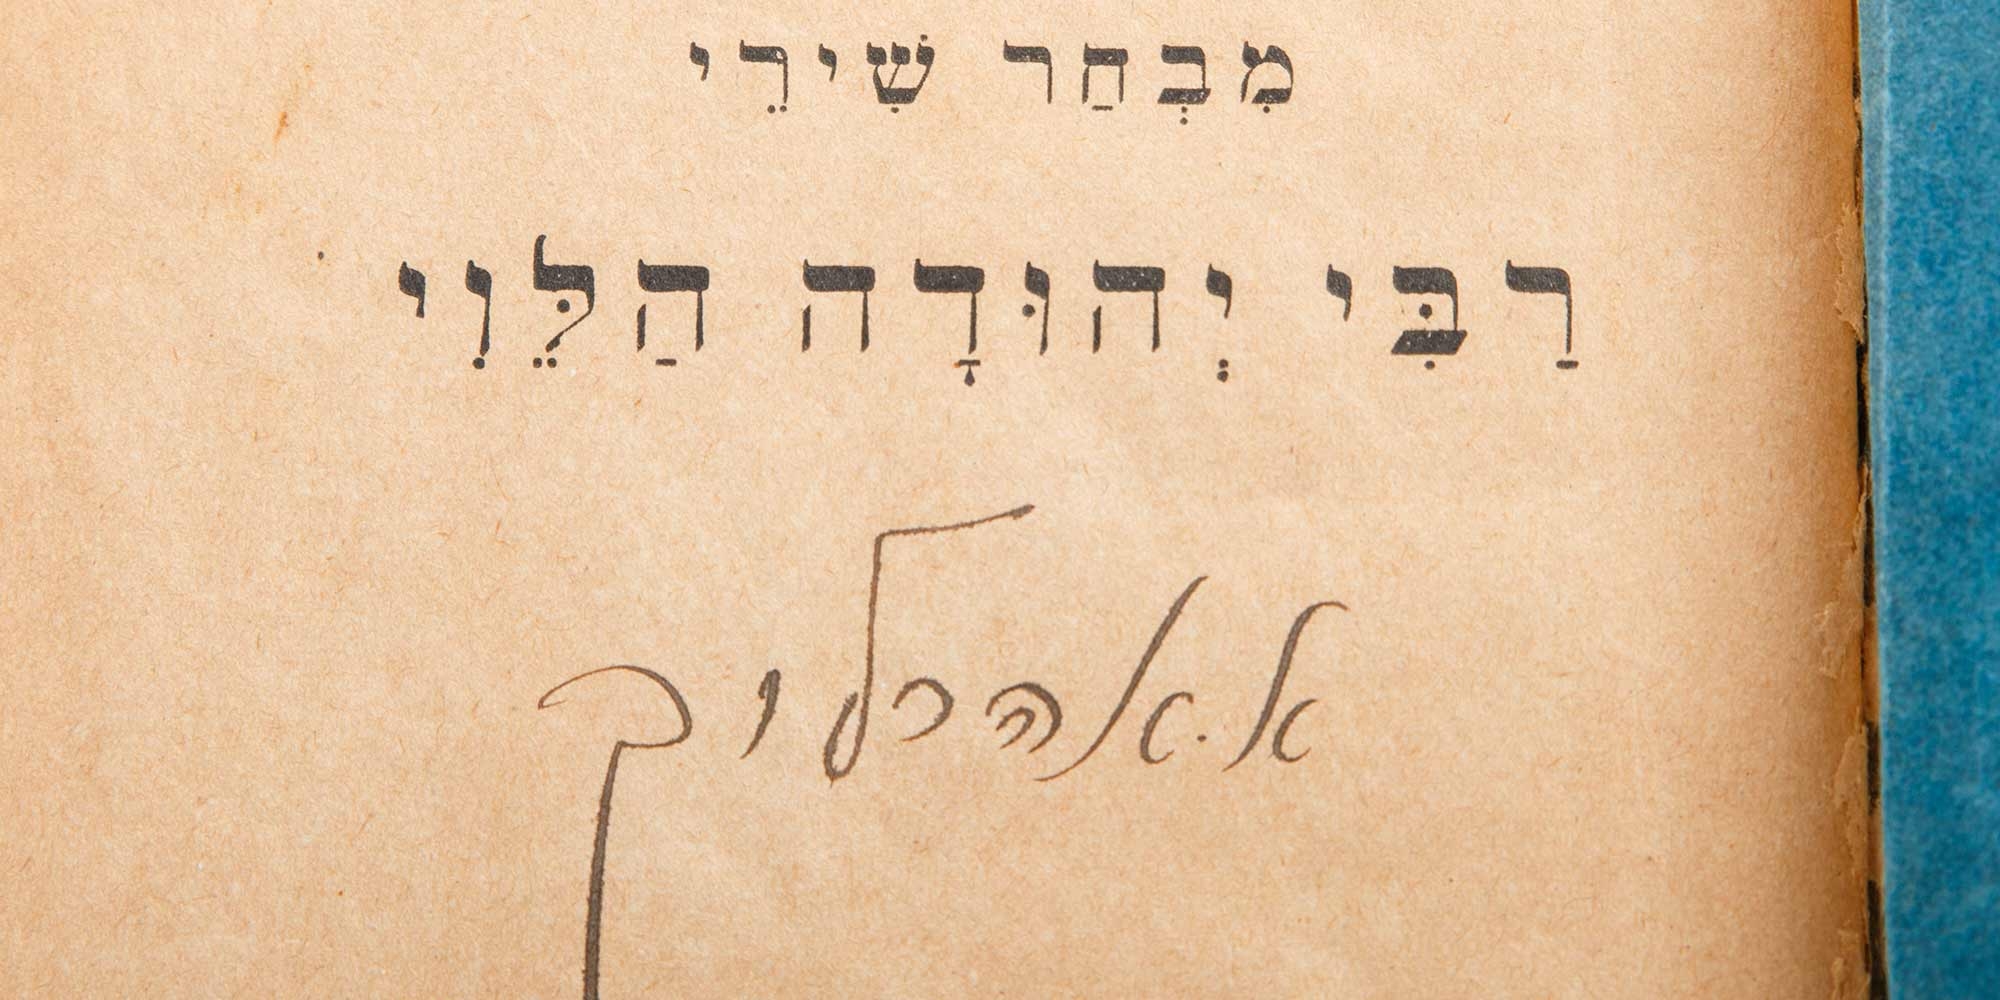 מִבְחַר שִׁירֵי
רַבִּי יְהוּדָה הַלֵּוִי
א.אהרליך